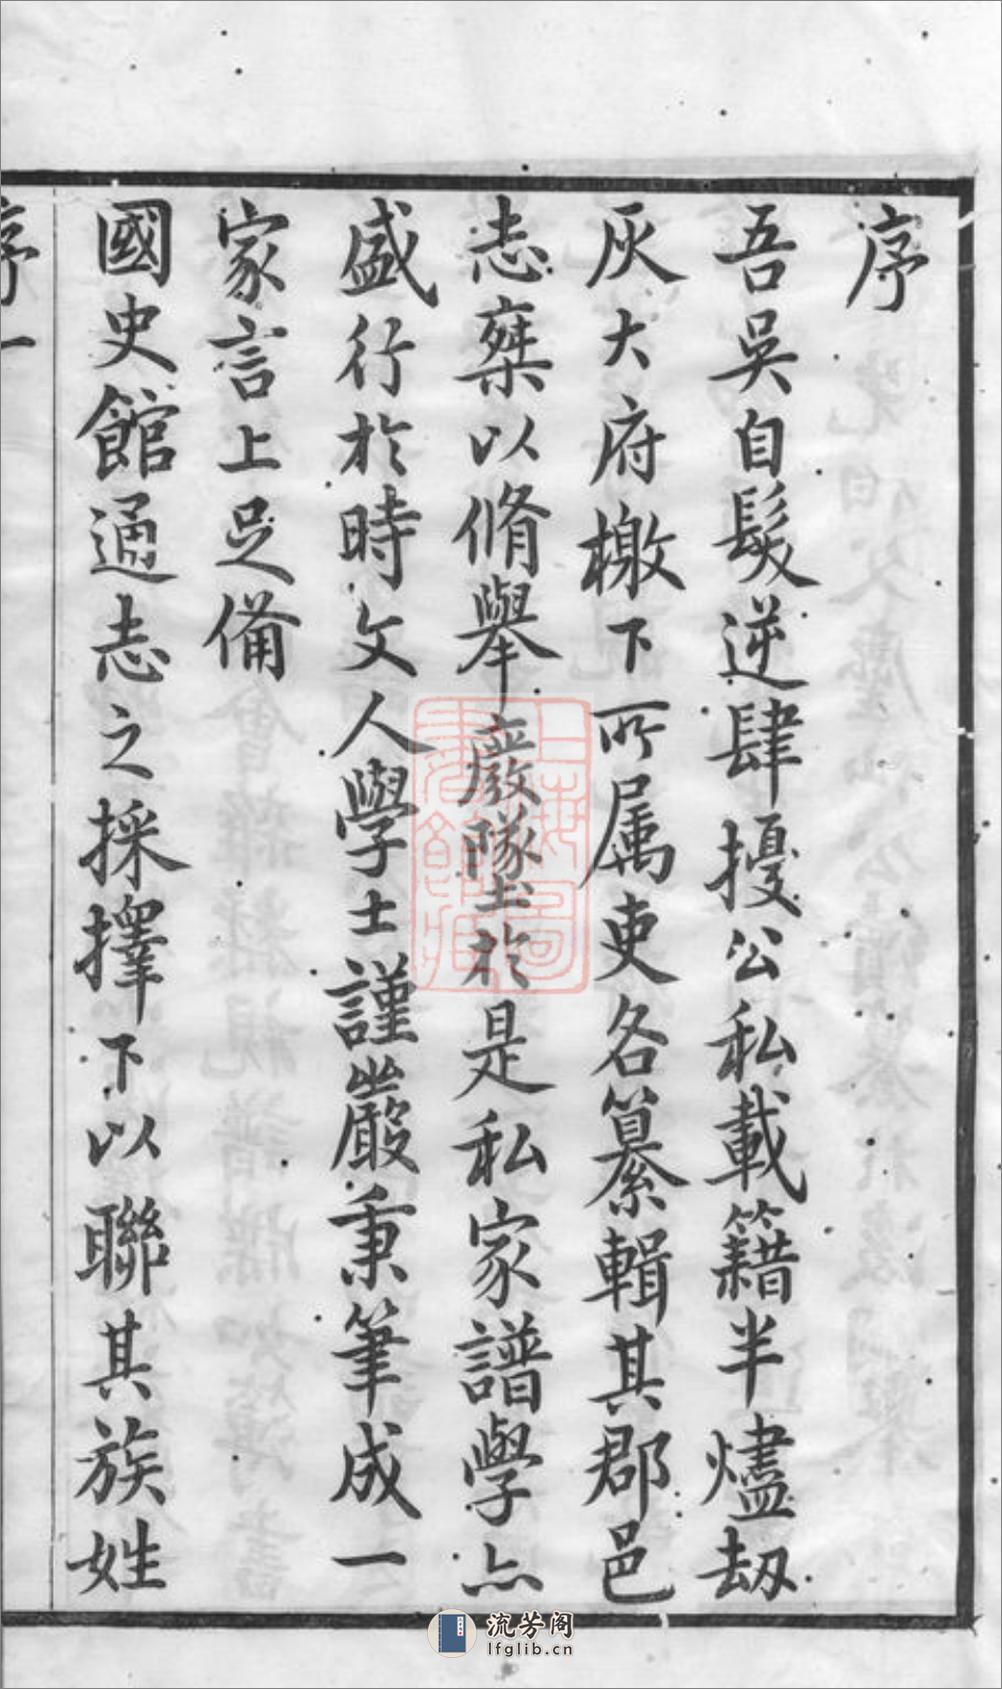 序
吾吳自髮逆肆擾公私載籍半燼刼
灰大府檄下所属吏各纂輯其郡邑
志乗以脩舉廢墜於是私家譜學亦
盛行於時文人學士謹嚴秉筆成一
家言上足備
國史館通志之採擇下以聯其族姓
序 一
上海圖書館藏
流芳阁
lfglib.cn